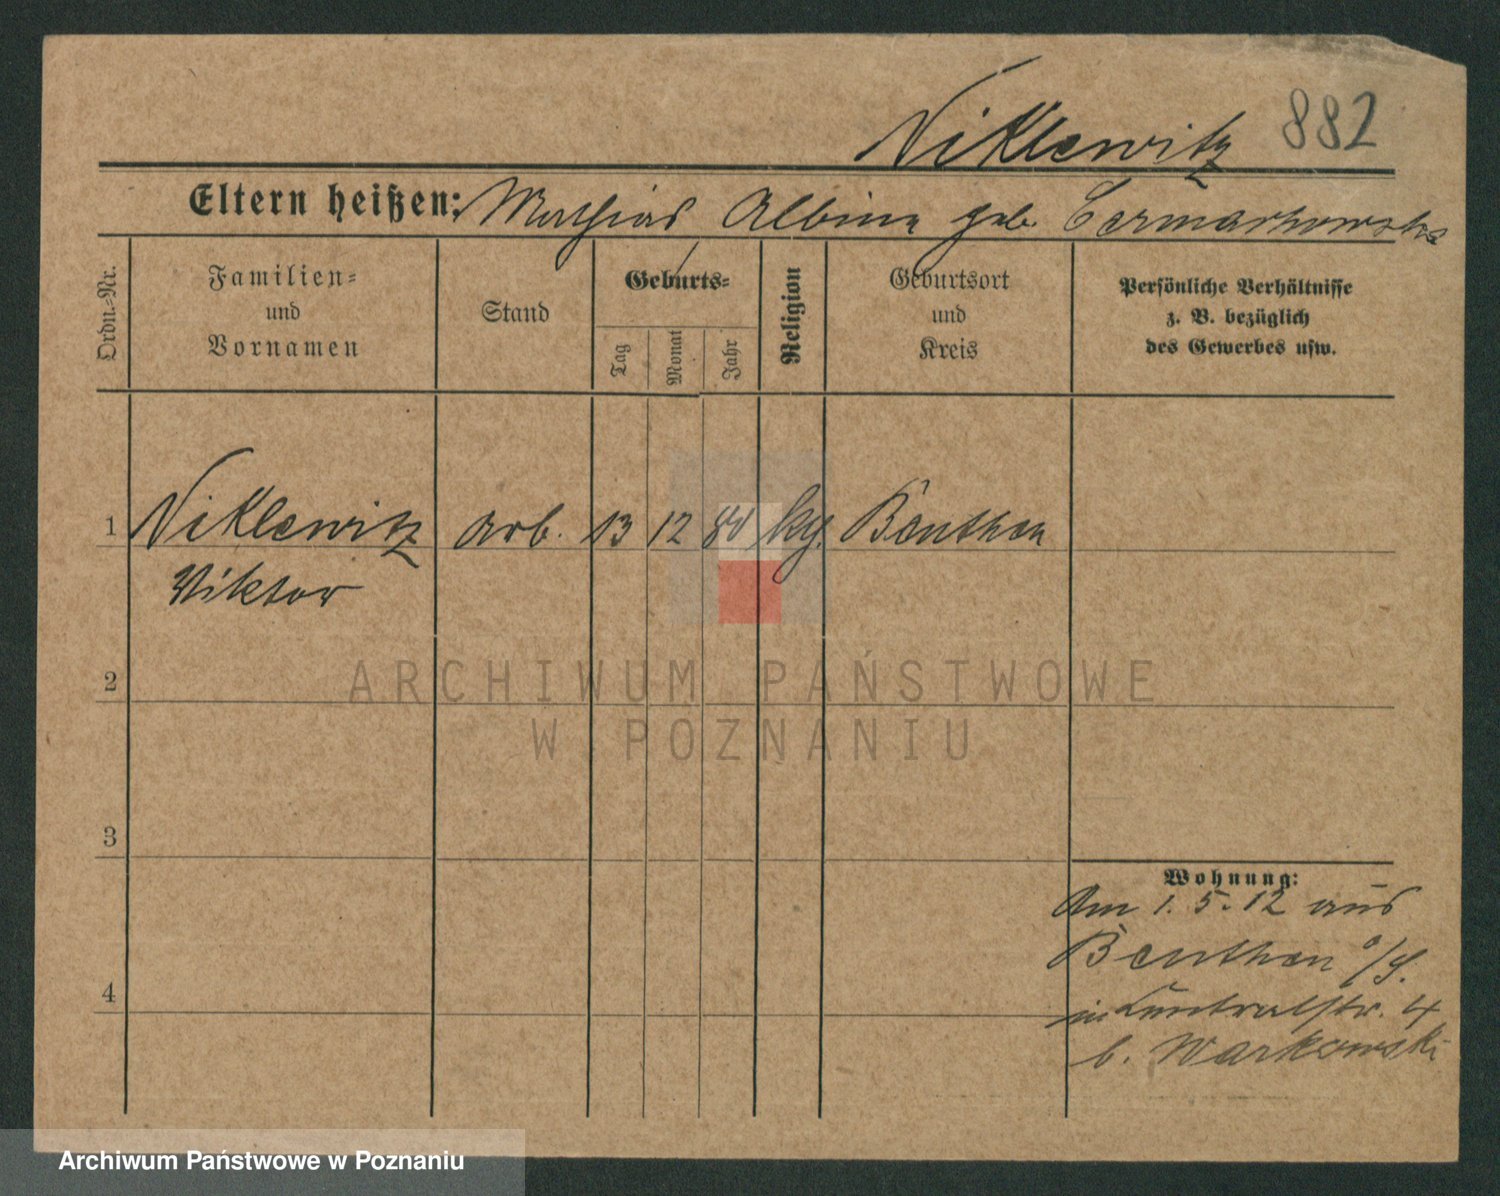 Niklewitz 882
Eltern heißen: Mathias Albina geb. Czarmarkowska
Ordn.-Nr.
Familien-
und
Vornamen
Stand
Geburts-
Tag
Monat
Jahr
Religion
Geburtsort
und
Kreis
Persönliche Verhältnisse
z. B. bezüglich
des Gewerbes usw.
1 Niklewitz arb. 13 12 kg. Beuthen
Viktor
2
3
4
Wohnung:
Am 1.5.12 aus
Beuthen o/S.
in 4
b. Warkowski
ARCHIWUM PAŃSTWOWE
W POZNANIU
Archiwum Państwowe w Poznaniu